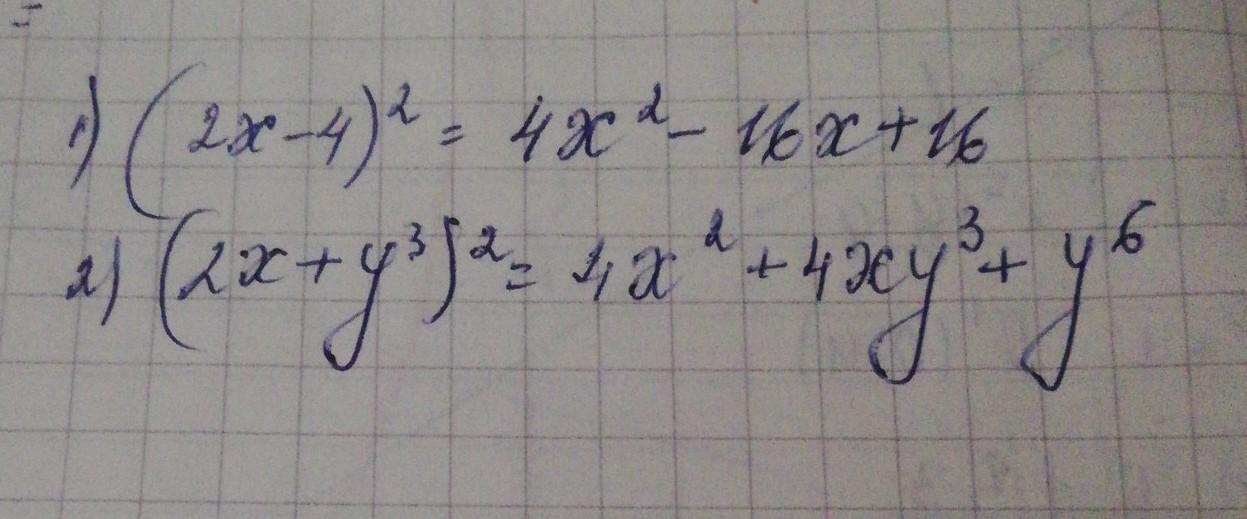 1) (2x-4)² = 4x² - 16x + 16
2) (2x+y³)² = 4x² + 4xy³ + y⁶